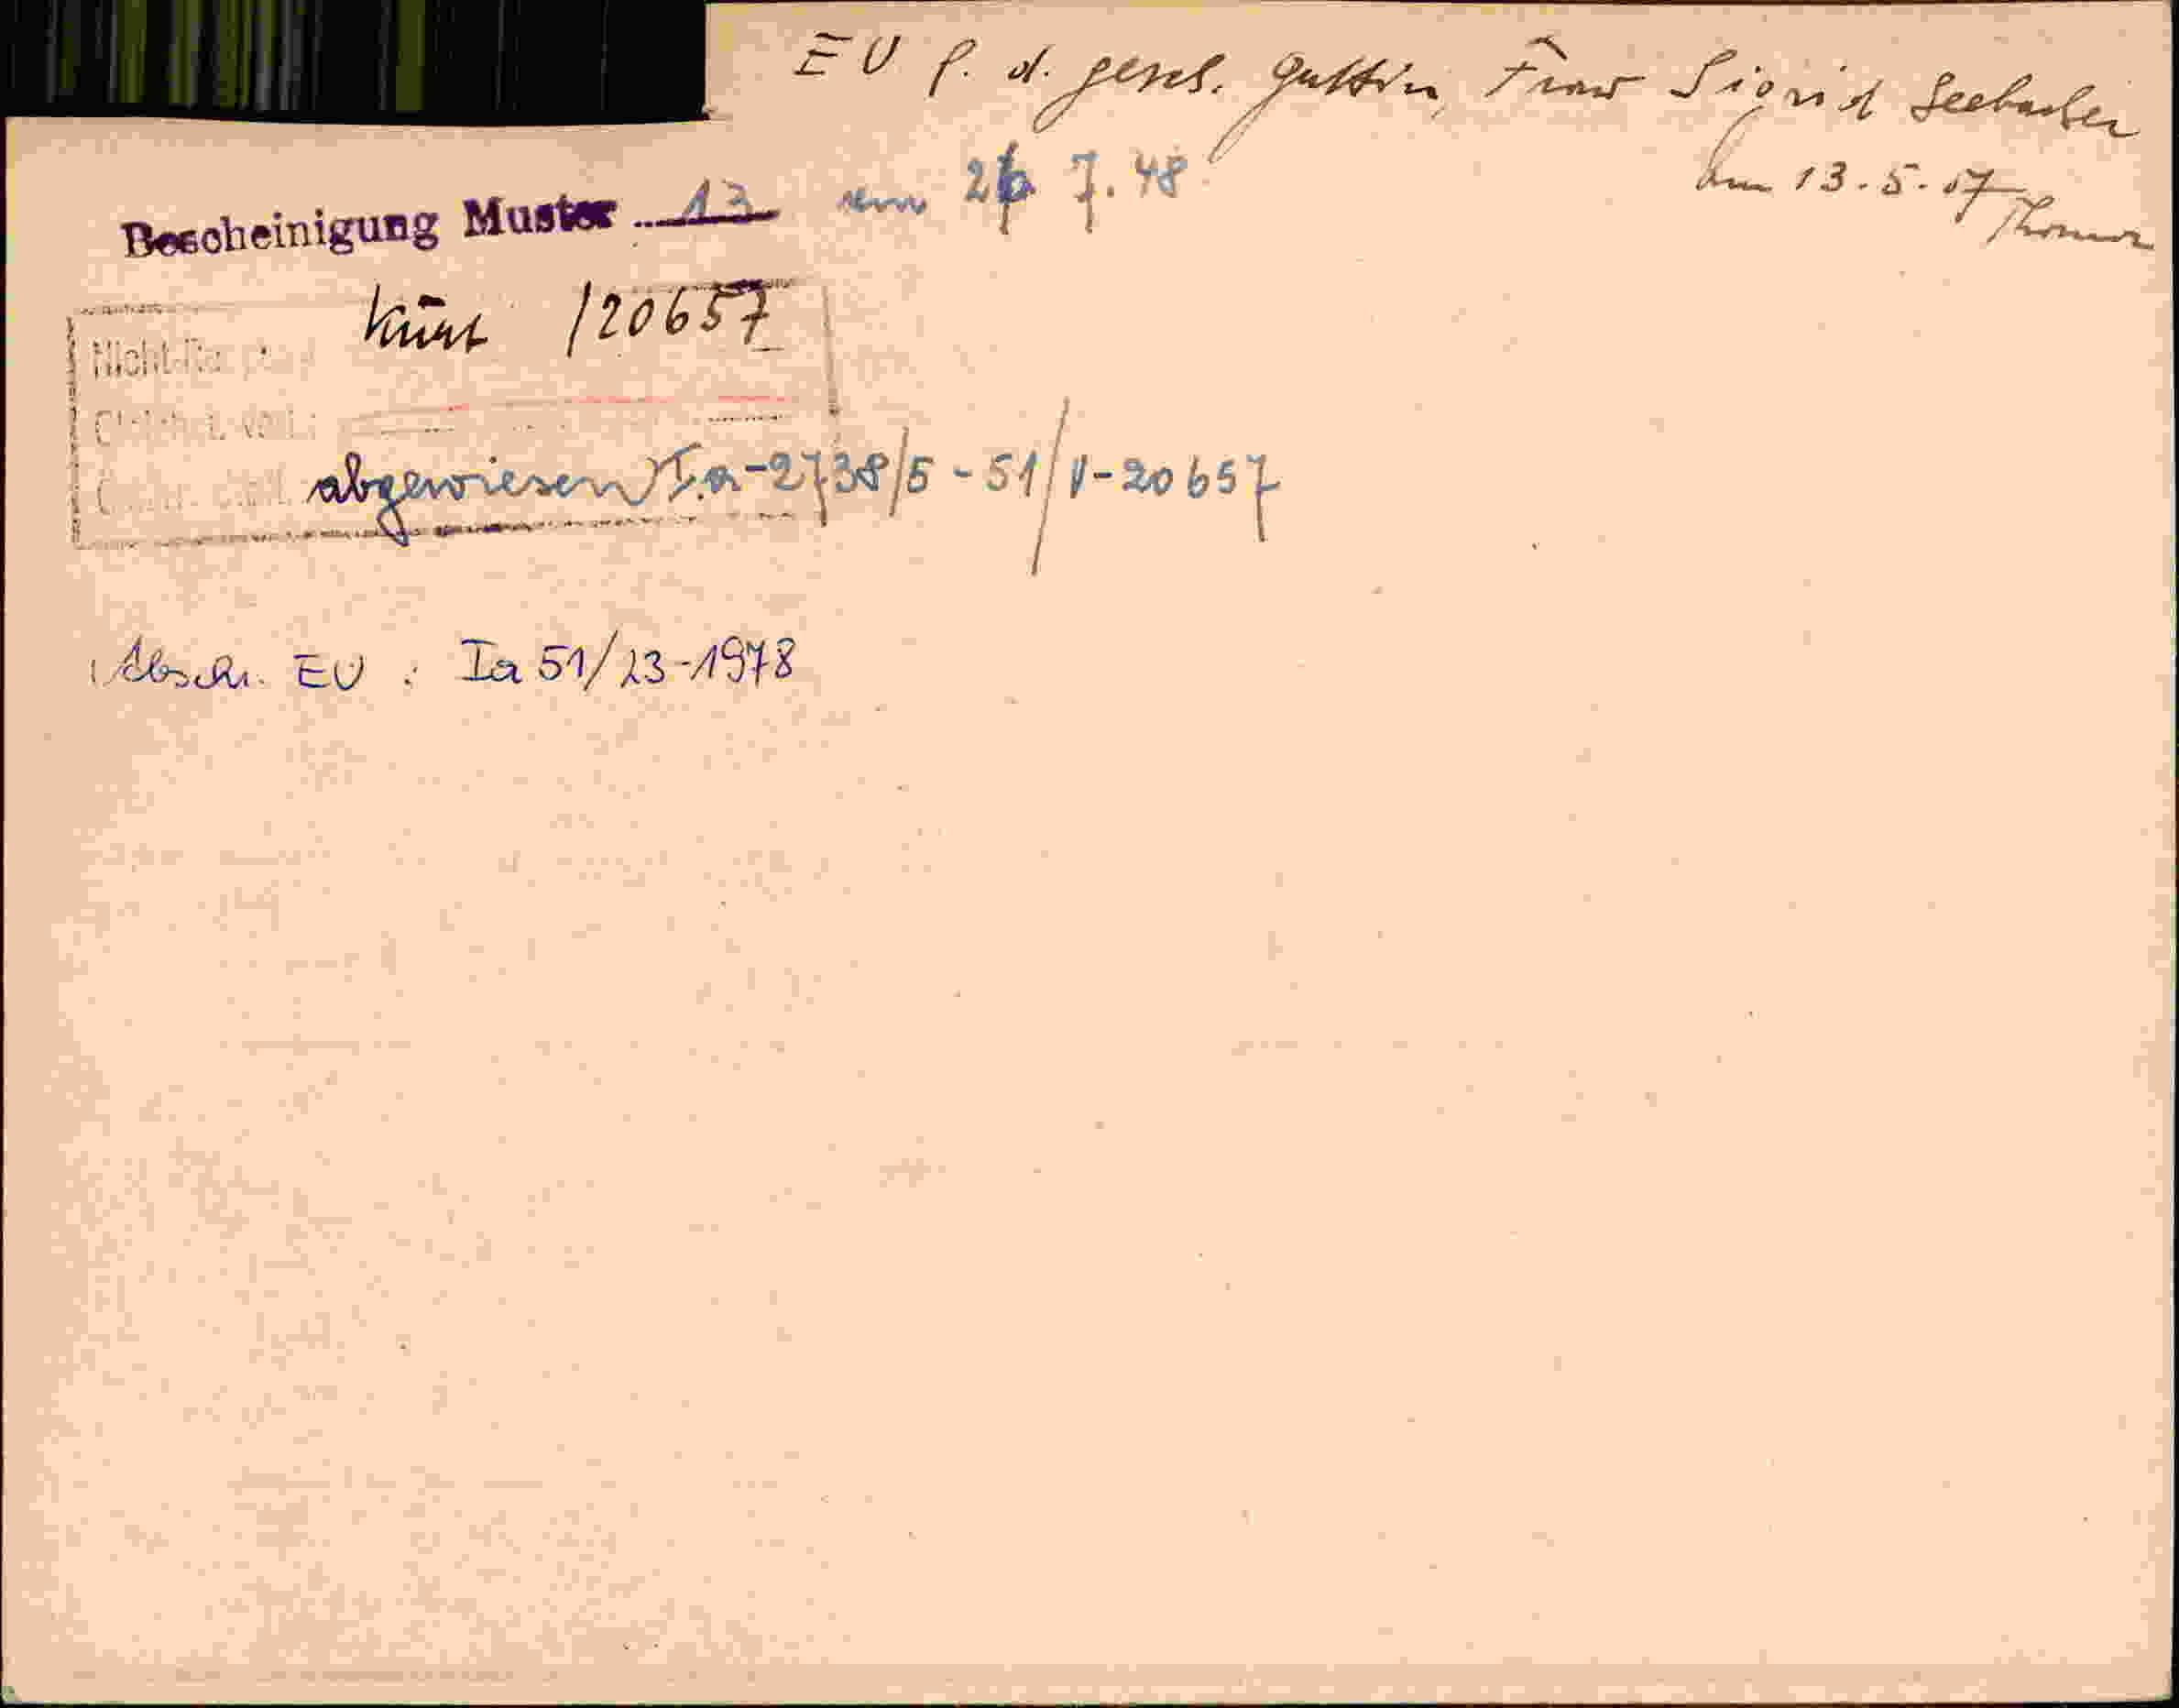 EV f. d. gesch. Gattin, Frau Sigrid Seebacher
am 13.5.57
Bescheinigung Muster 13 am 26 7.48
Nicht-
Kurt /20657
abgewiesen I.a-2738/5-51/V-20657
Absch. EV : Ia 51/23-1978